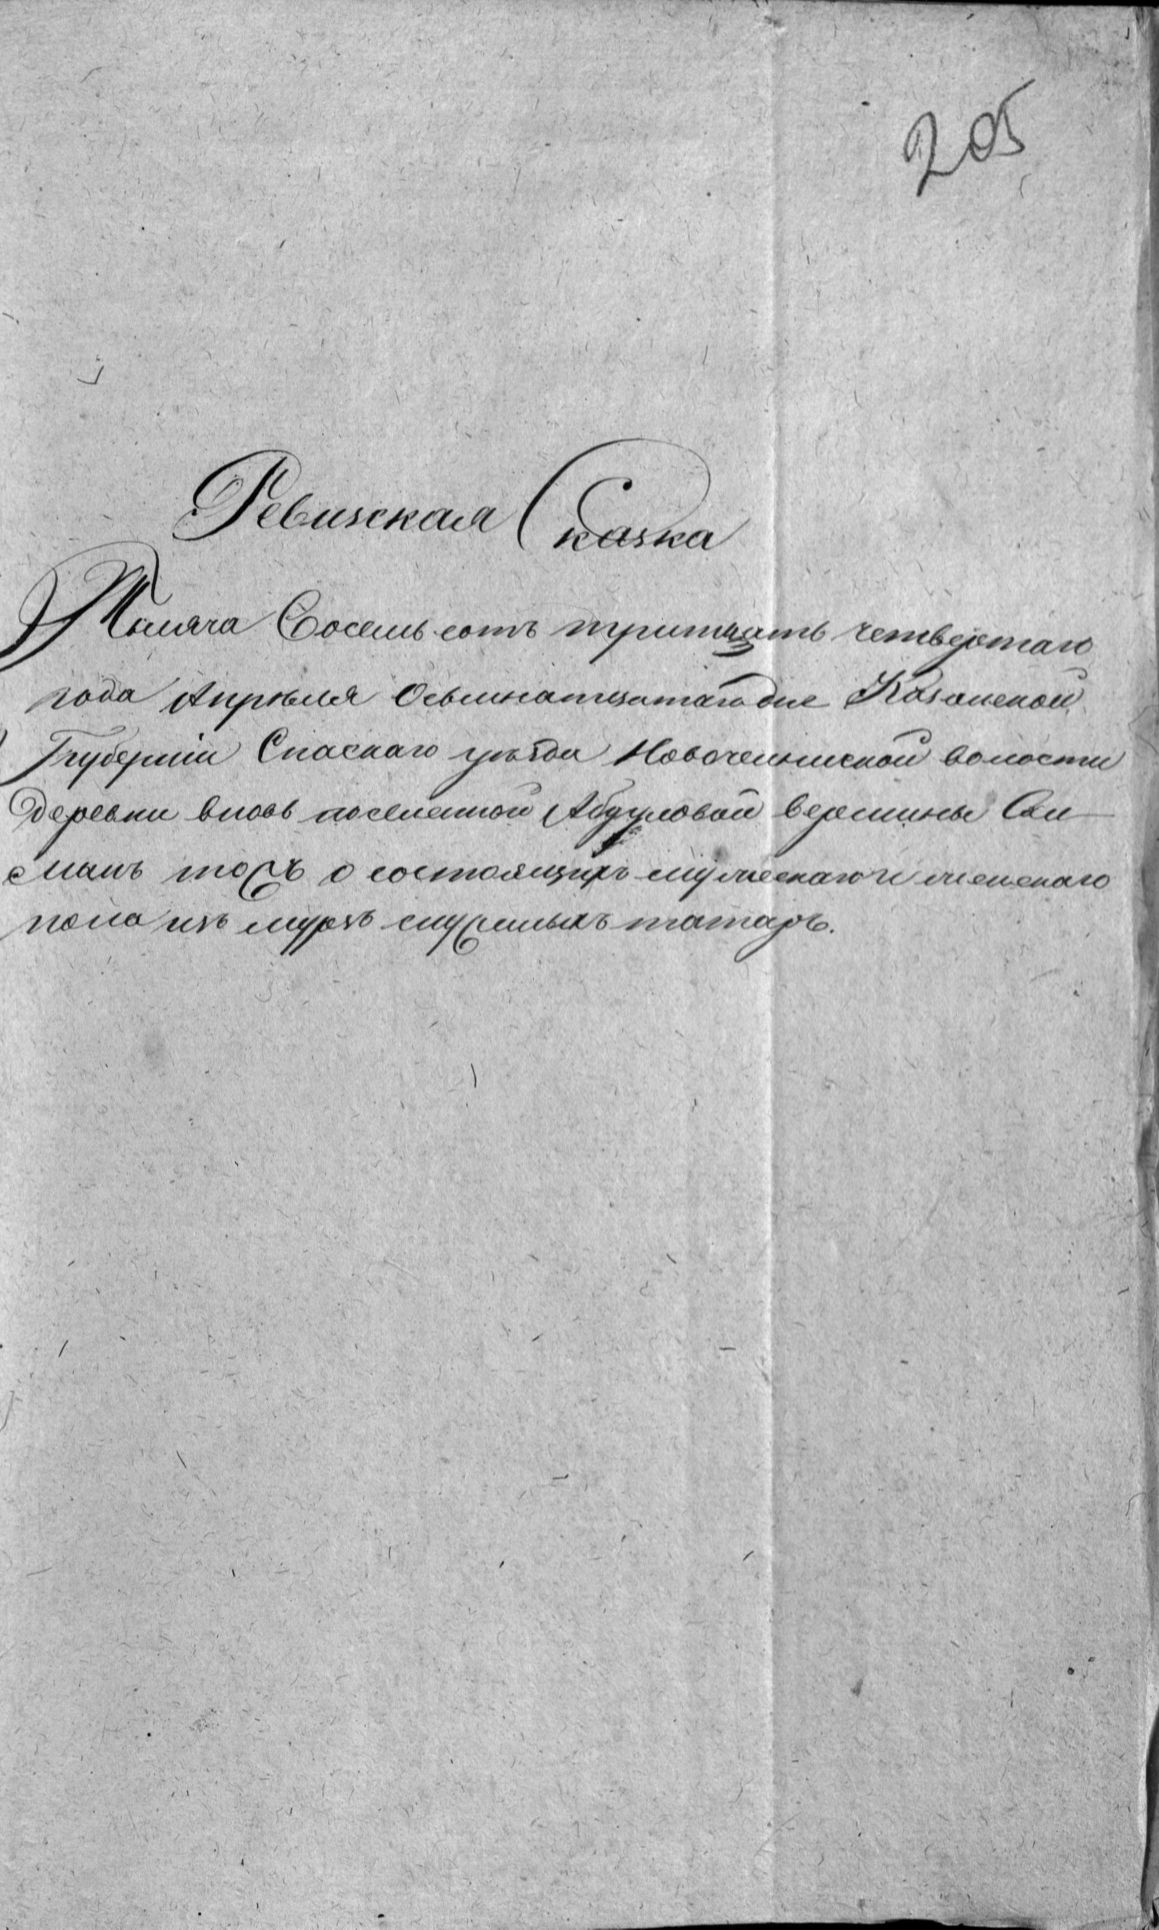 205
Ревизская Сказка
Тысяча Восемь сотъ тритцать четвертаго
года Апреля Осьмнатцатаго дне Казанской
Губерніи Спаскаго уѣзда Новочелнинской волости
Деревни вновь поселенной Абдуловой вершины Сал
манъ тоже о состоящихъ мужескаго и женскаго
пола изъ мурзъ служилыхъ татаръ.